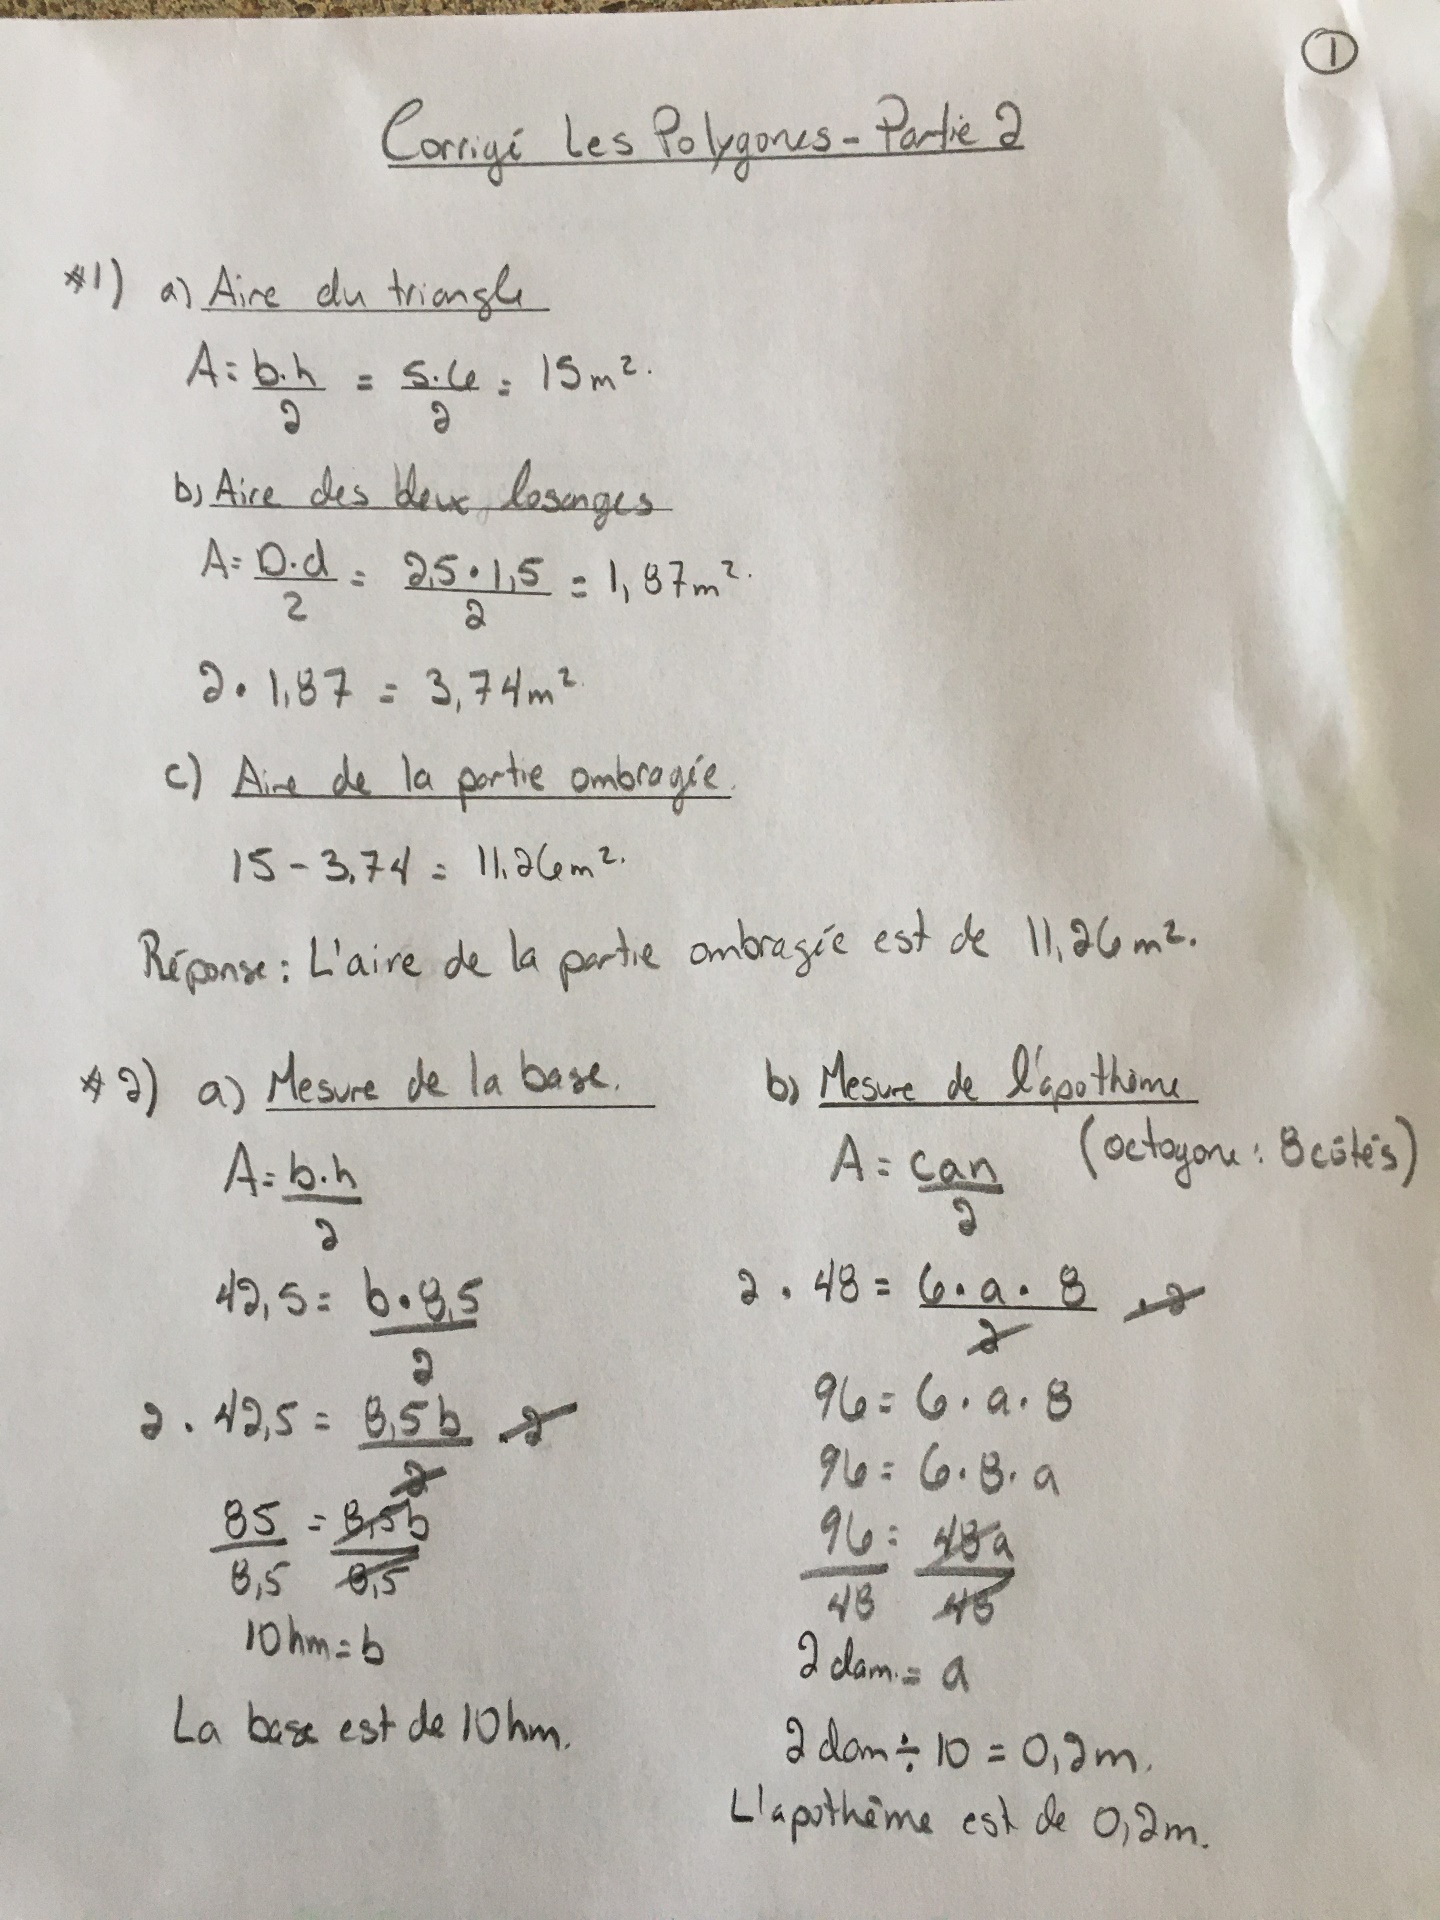 1
Corrigé Les Polygones - Partie 2
#1) a) Aire du triangle
A = b·h/2 = 5·6/2 = 15 m².
b) Aire des deux losanges
A = D·d/2 = 2,5·1,5/2 = 1,87 m².
2·1,87 = 3,74 m².
c) Aire de la partie ombragée.
15 - 3,74 = 11,26 m².
Réponse : L'aire de la partie ombragée est de 11,26 m².
#2) a) Mesure de la base.
A = b·h/2
42,5 = b·8,5/2
2·42,5 = 8,5b/2 ·2
85/8,5 = 8,5b/8,5
10 hm = b
La base est de 10 hm.
b) Mesure de l'apothème
(octogone : 8 côtés)
A = can/2
2·48 = 6·a·8/2 ·2
96 = 6·a·8
96 = 6·8·a
96/48 = 48a/48
2 dam = a
2 dam ÷ 10 = 0,2 m.
L'apothème est de 0,2 m.